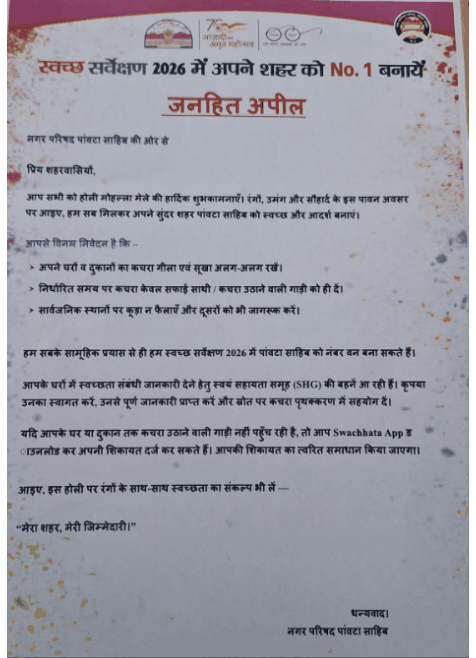 आज़ादी का
अमृत महोत्सव
स्वच्छ सर्वेक्षण 2026 में अपने शहर को No. 1 बनायें
जनहित अपील
नगर परिषद पांवटा साहिब की ओर से
प्रिय शहरवासियों,
आप सभी को होली मोहल्ला मेले की हार्दिक शुभकामनाएँ। रंगों, उमंग और सौहार्द के इस पावन अवसर
पर आइए, हम सब मिलकर अपने सुंदर शहर पांवटा साहिब को स्वच्छ और आदर्श बनाएं।
आपसे विनम्र निवेदन है कि –
➤ अपने घरों व दुकानों का कचरा गीला एवं सूखा अलग-अलग रखें।
➤ निर्धारित समय पर कचरा केवल सफाई साथी / कचरा उठाने वाली गाड़ी को ही दें।
➤ सार्वजनिक स्थानों पर कूड़ा न फैलाएँ और दूसरों को भी जागरूक करें।
हम सबके सामूहिक प्रयास से ही हम स्वच्छ सर्वेक्षण 2026 में पांवटा साहिब को नंबर वन बना सकते हैं।
आपके घरों में स्वच्छता संबंधी जानकारी देने हेतु स्वयं सहायता समूह (SHG) की बहनें आ रही हैं। कृपया
उनका स्वागत करें, उनसे पूर्ण जानकारी प्राप्त करें और स्रोत पर कचरा पृथक्करण में सहयोग दें।
यदि आपके घर या दुकान तक कचरा उठाने वाली गाड़ी नहीं पहुँच रही है, तो आप Swachhata App ड
ाउनलोड कर अपनी शिकायत दर्ज कर सकते हैं। आपकी शिकायत का त्वरित समाधान किया जाएगा।
आइए, इस होली पर रंगों के साथ-साथ स्वच्छता का संकल्प भी लें —
“मेरा शहर, मेरी जिम्मेदारी।”
धन्यवाद।
नगर परिषद पांवटा साहिब